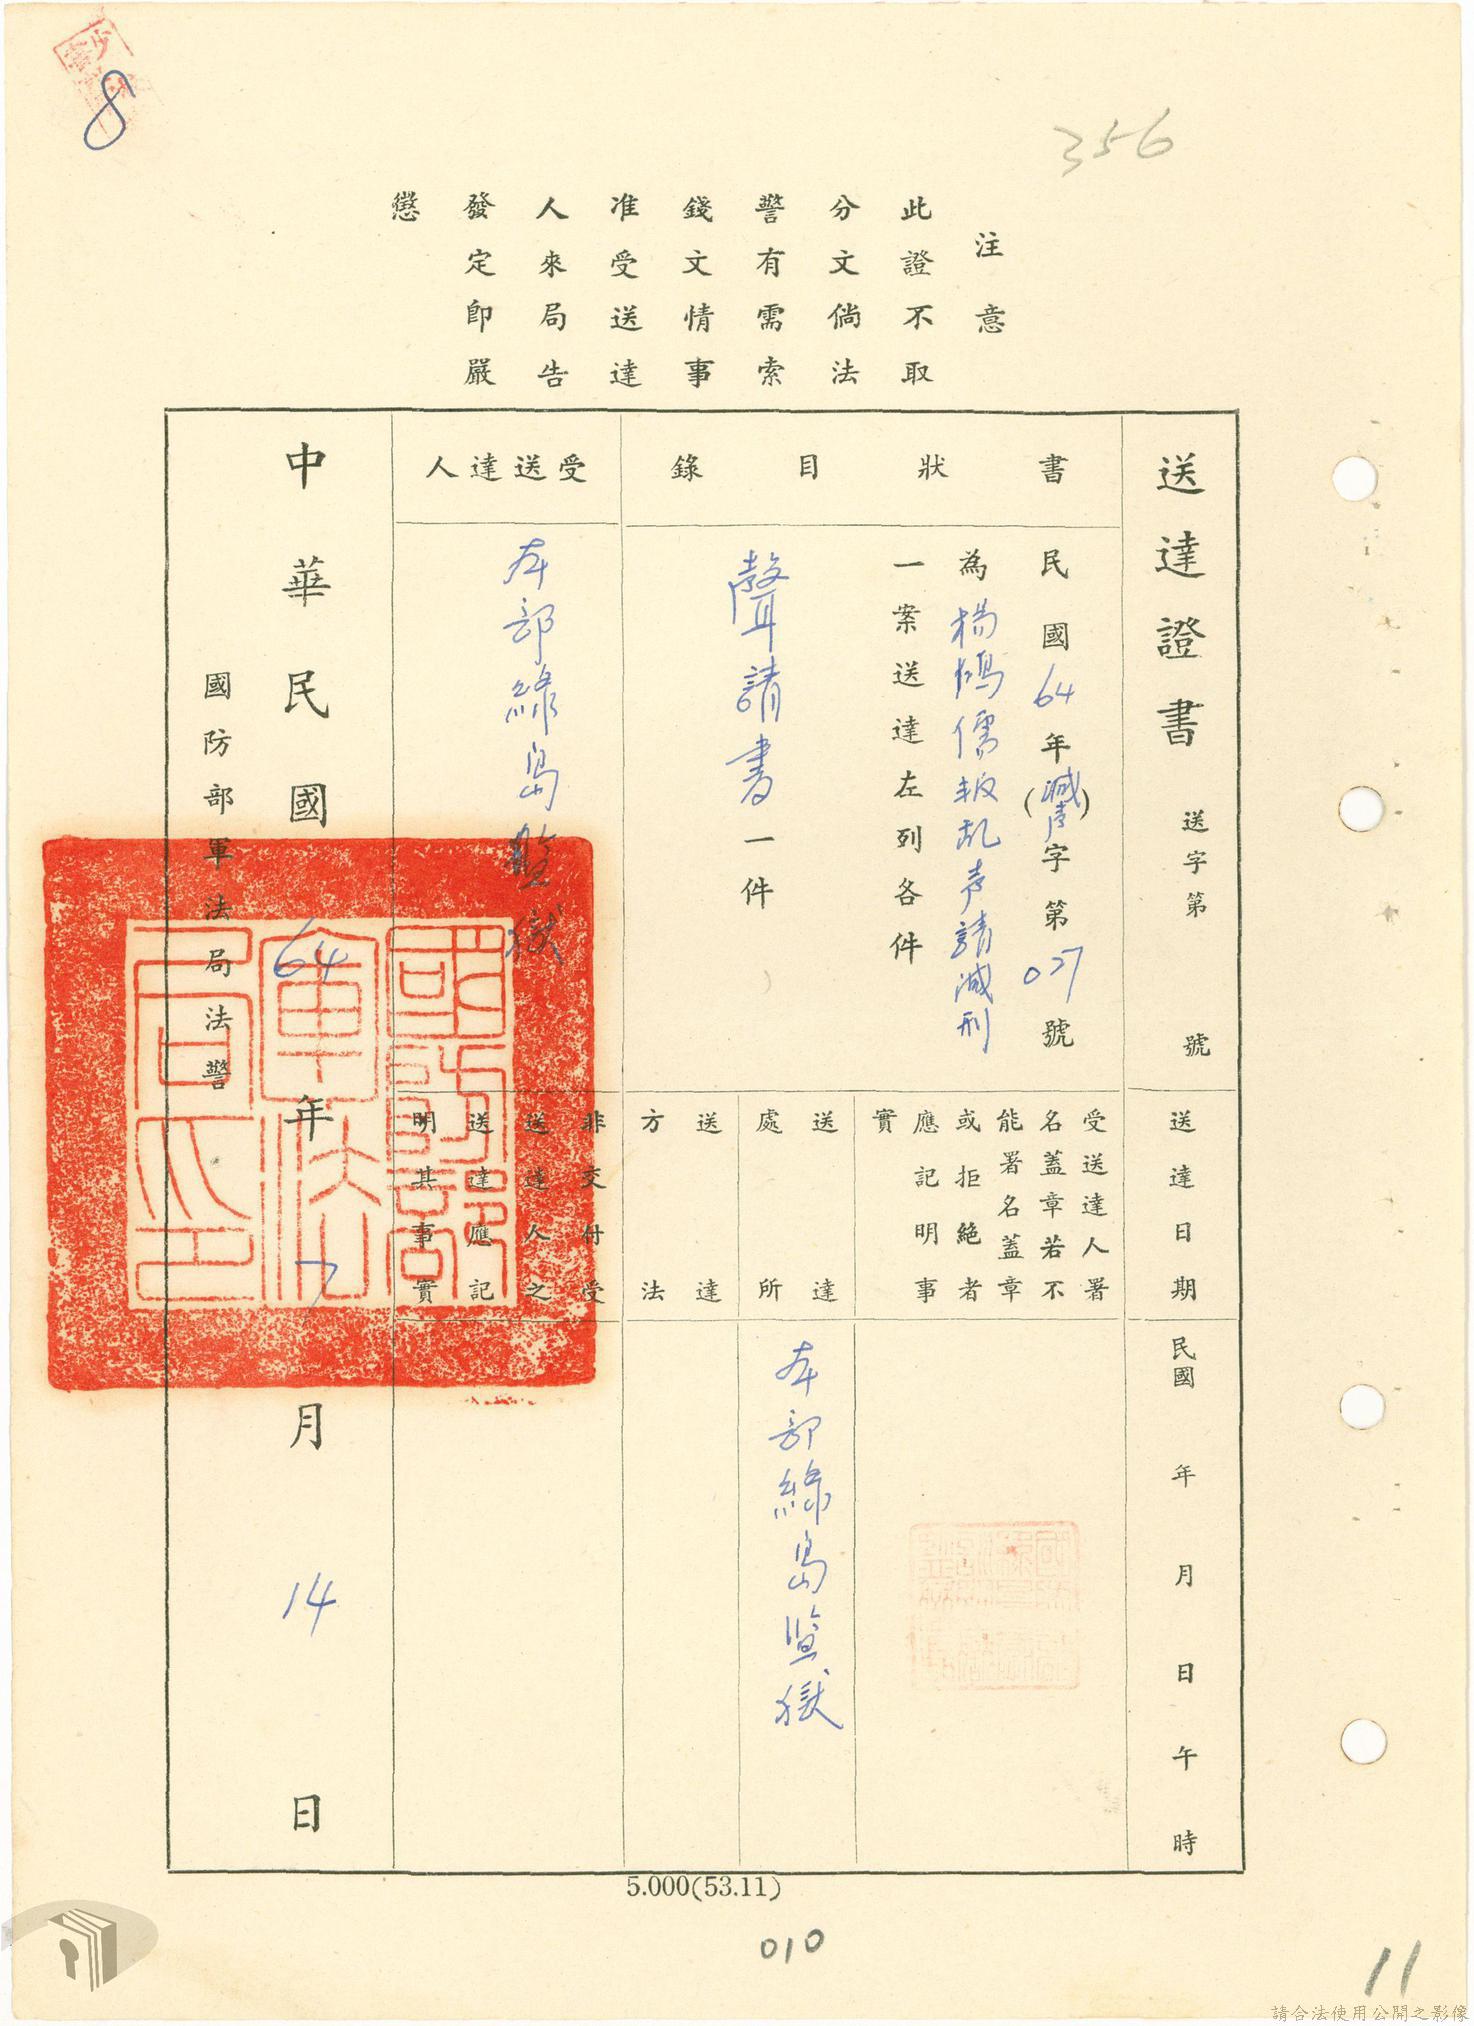 8
356
注意
此證不取
分文倘法
警有需索
錢文情事
准受送達
人來局告
發定即嚴
懲
送達證書
送字第 號
書狀目錄
民國64年(減聲)字第027號
為楊鴻儒叛乱声請減刑
一案送達左列各件
聲請書一件
受送達人
本部綠島監獄
送達日期
民國 年 月 日 午 時
受送達人署
名蓋章若不
能署名蓋章
或拒絕者
應記明事
實
送達
處所
本部綠島監獄
送達
方法
非交付受
送達人之
送達應記
明其事實
中華民國64年7月14日
國防部軍法局法警
5.000(53.11)
010
11
請合法使用公開之影像